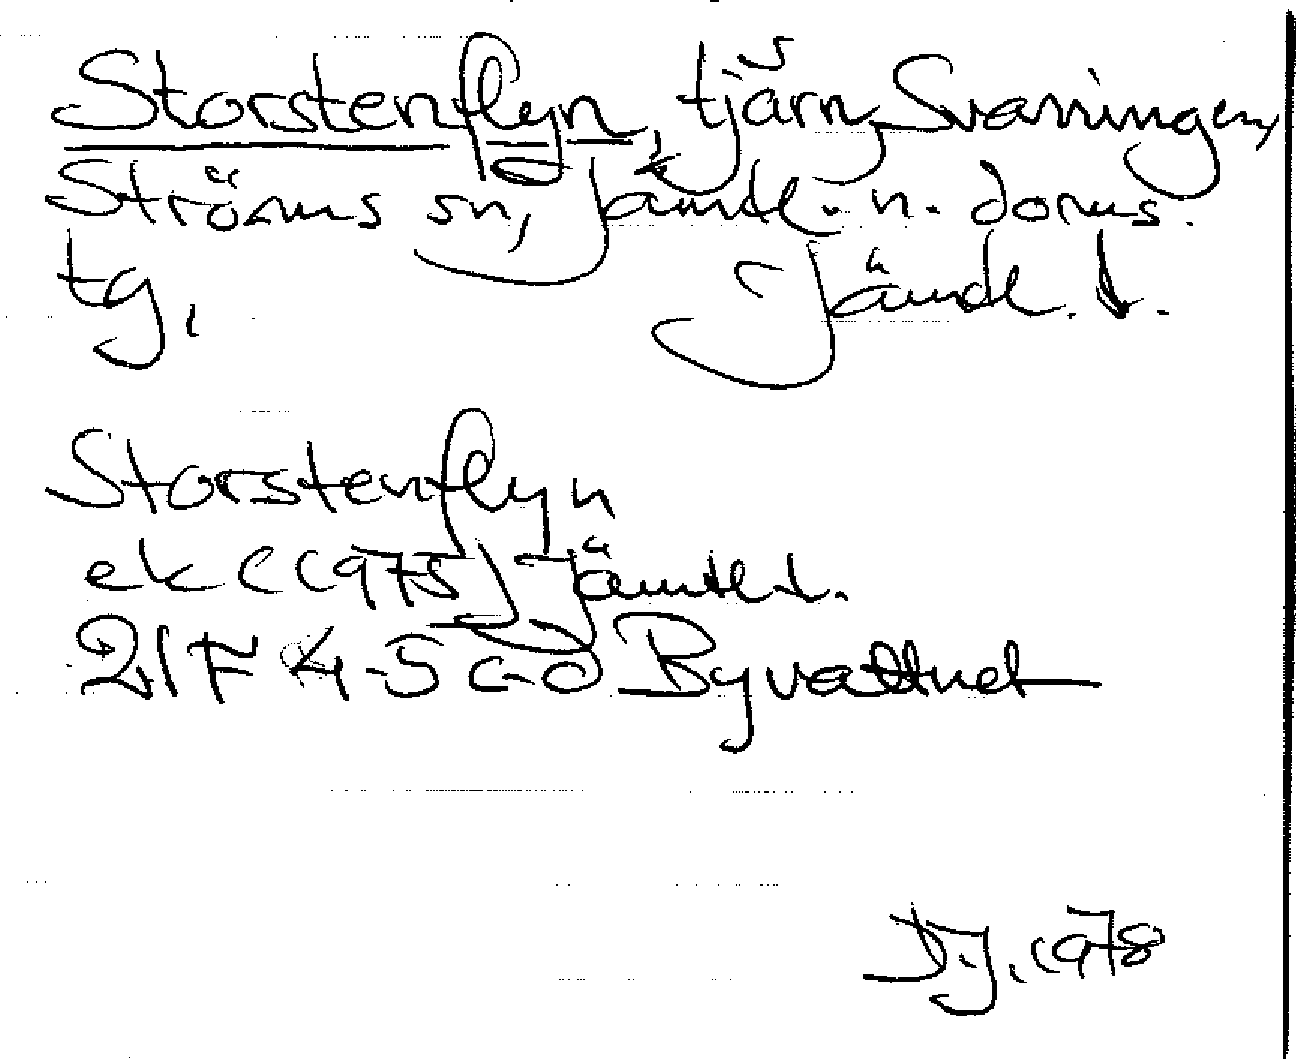 Storstenflyn, tjärn, Svaningen,
Ströms sn, Jämtl. n. doms.
tg, Jämtl. l.
Storstenflyn
ek ((1975) Jämtl. l.
21F 4-5 c-d Byvattnet
D.J. 1978